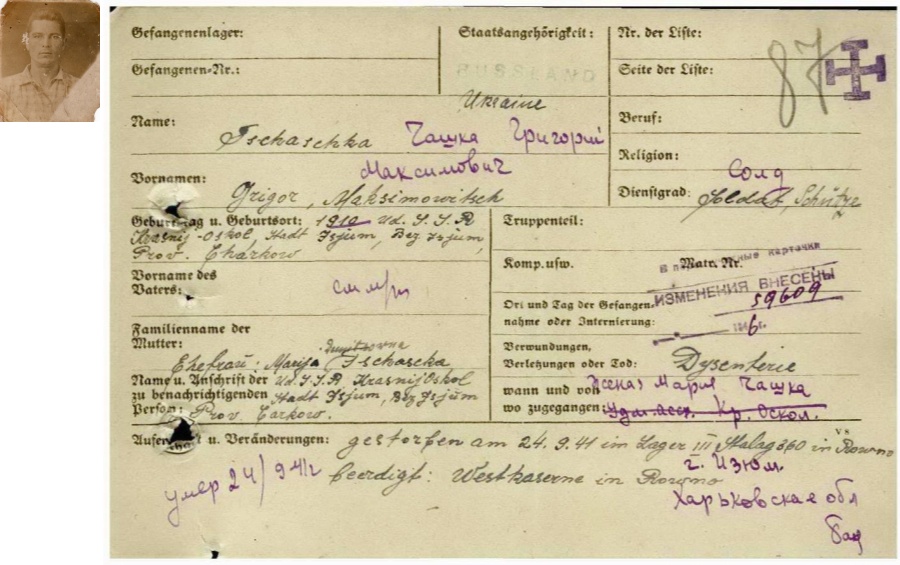 Gefangenenlager:
Staatsangehörigkeit:
Nr. der Liste:
87
Gefangenen-Nr.:
RUSSLAND
Seite der Liste:
Ukraine
Name:
Tschaschka Чашка Григорий
Beruf:
Максимович
Religion:
Vornamen:
Grigor, Maksimowitsch
Солд
Dienstgrad: Soldat, Schütze
Geburtstag u. Geburtsort: 1910 Ud. S. S. R
Krasnij-Oskol, Stadt Isjum, Bez Isjum,
Prov. Charkow
Truppenteil:
Vorname des
Vaters:
Komp. usw.
Matr. Nr.
карточки
ИЗМЕНЕНИЯ ВНЕСЕНЫ
59609
Ort und Tag der Gefangen-
nahme oder Internierung:
Familienname der
Mutter:
Ehefrau: Marija Tschaschka
Verwundungen,
Verletzungen oder Tod: Dysenterie
Name u. Anschrift der Ud. S. S. R, Krasnij Oskol
zu benachrichtigenden Stadt Isjum, Bez Isjum
Person: Prov. Carkow.
wann und von Мария Чашка
wo zugegangen: Кр. Оскол.
u. Veränderungen: gestorfen am 24. 9. 41 im Lager III Stalag 360 in Rowno
умер 24/9 41 beerdigt: Westkaserne in Rowno
г. Изюм.
Харьковская обл